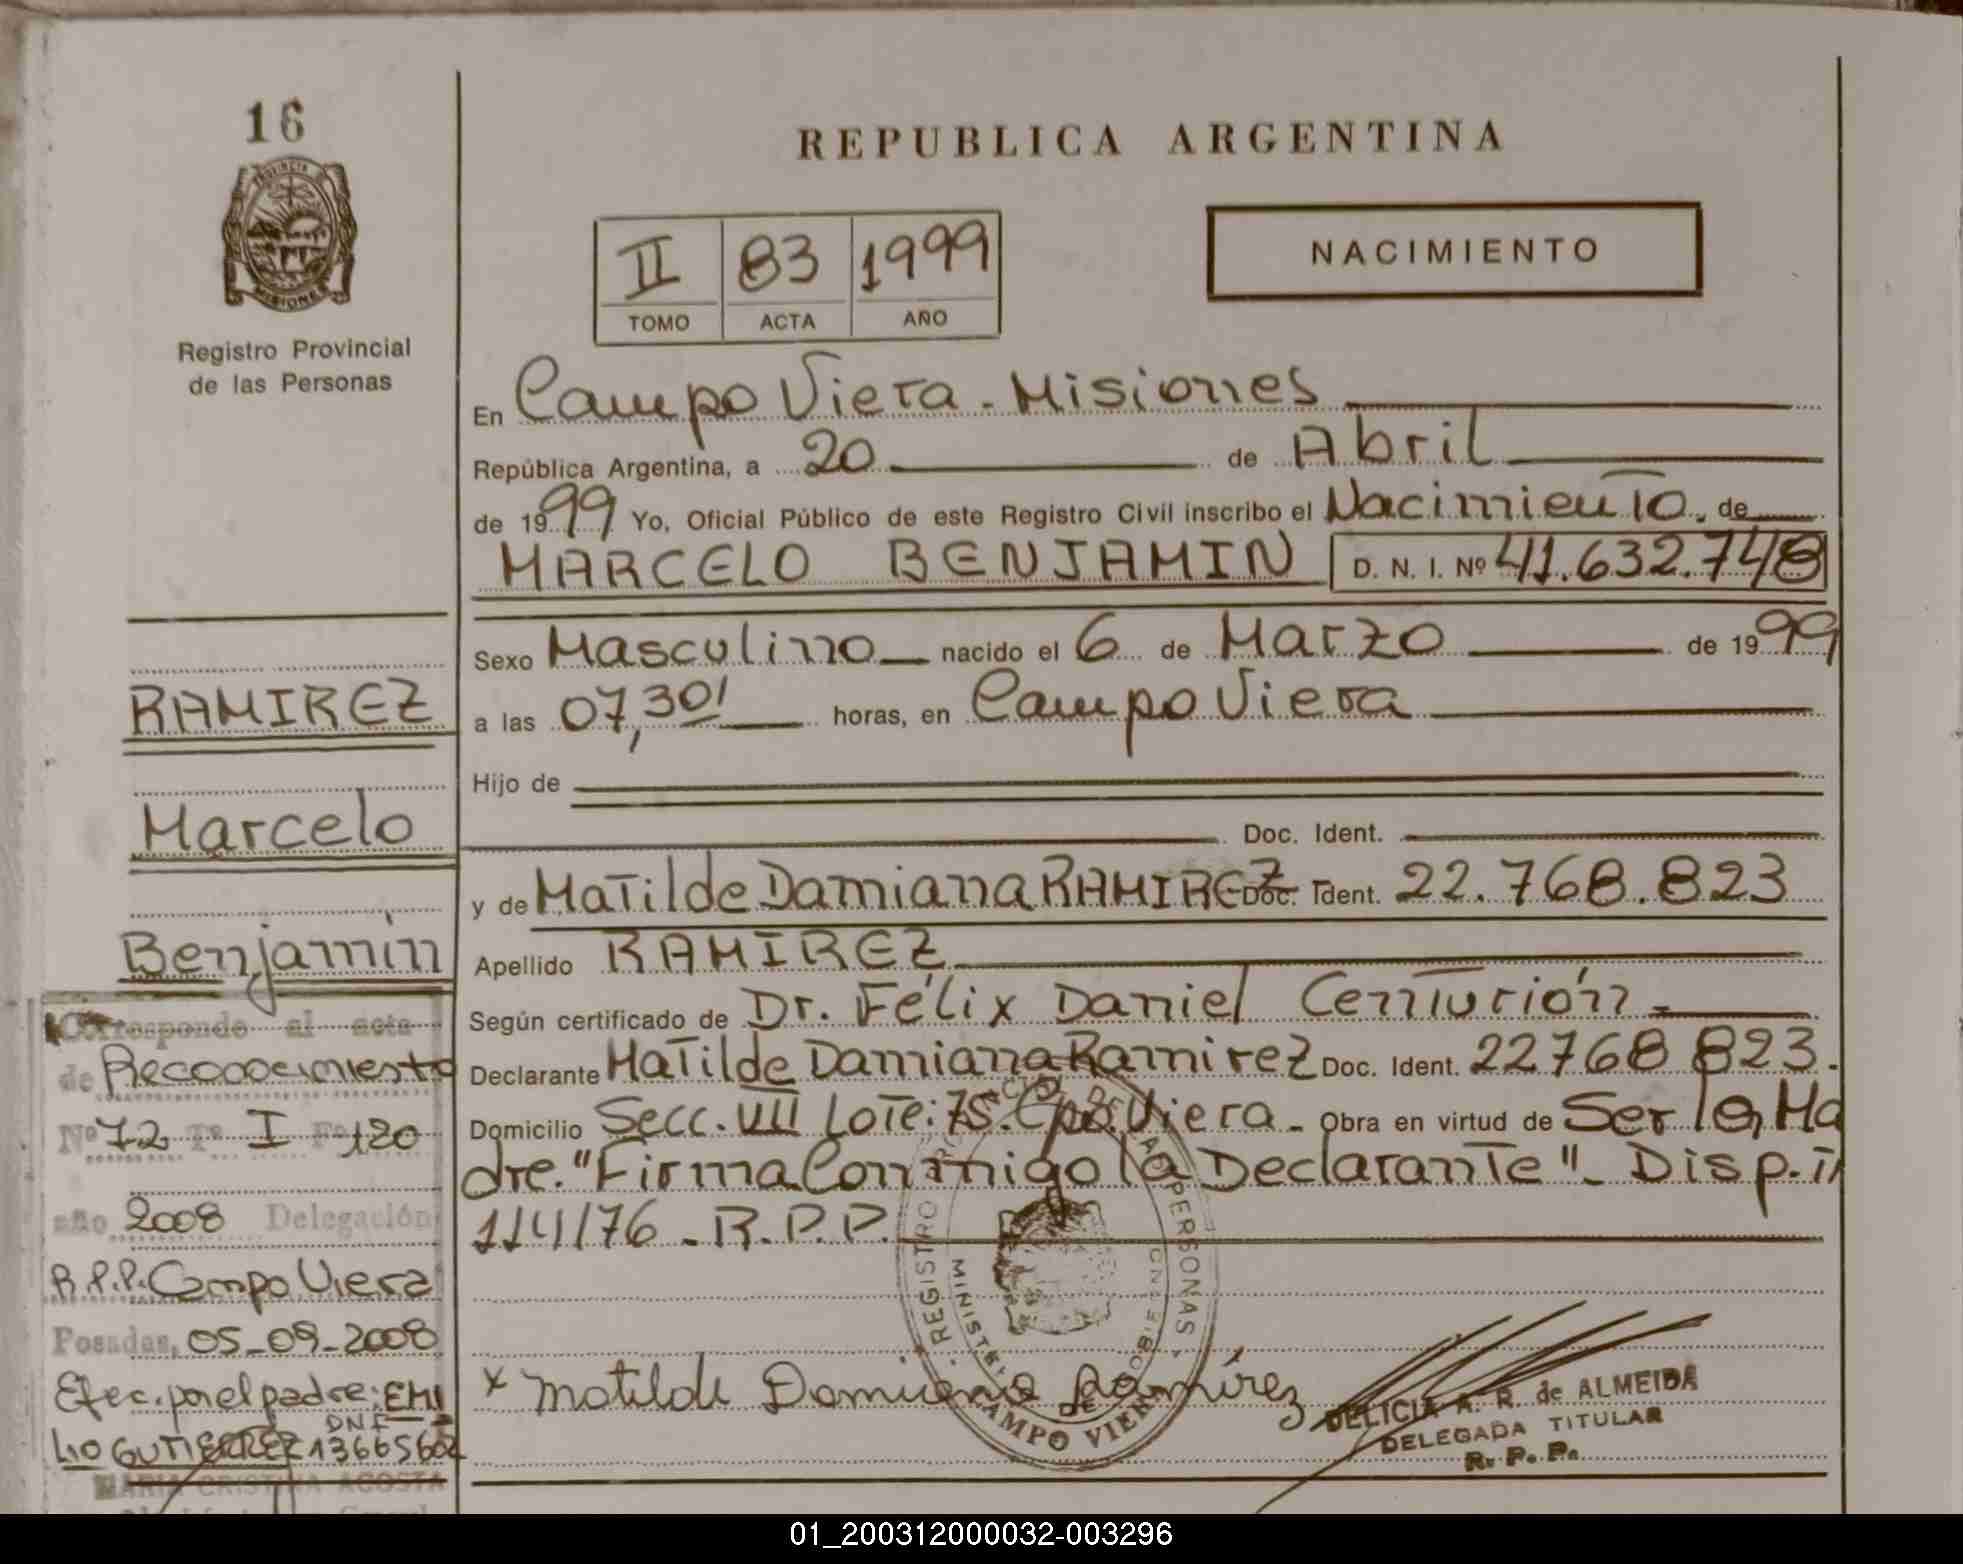 16
PROVINCIA
MISIONES
Registro Provincial
de las Personas
REPUBLICA ARGENTINA
II 83 1999
TOMO ACTA AÑO
NACIMIENTO
En Campo Viera - Misiones
República Argentina, a 20 de Abril
de 1999 Yo, Oficial Público de este Registro Civil inscribo el Nacimiento de
MARCELO BENJAMIN D. N. I. Nº 41.632.748
Sexo Masculino nacido el 6 de Marzo de 1999
a las 07,30' horas, en Campo Viera
Hijo de
Doc. Ident.
y de Matilde Damiana RAMIREZ Doc. Ident. 22.768.823
Apellido RAMIREZ
Según certificado de Dr. Félix Daniel Centurión -
Declarante Matilde Damiana Ramirez Doc. Ident. 22768 823.
Domicilio Secc. VII Lote: 75. Cpo. Viera - Obra en virtud de Ser la Ma
dre. "Firma Conmigo la Declarante" - Disp.
114/76 - R.P.P.
x Matilde Damiana Ramírez
REGISTRO DE LAS PERSONAS
CAMPO VIERA
DELICIA A. R. de ALMEIDA
DELEGADA TITULAR
R. P. P.
RAMIREZ
Marcelo
Benjamín
Corresponde al acta
de Reconocimiento
Nº 72 Tº I Fº 120
año 2008 Delegación
R.P.P. Campo Viera
Posadas, 05-09-2008
Efec. por el padre: EMI
DNI
LIO GUTIERREZ 13665602
MARIA CRISTINA ACOSTA
01_200312000032-003296